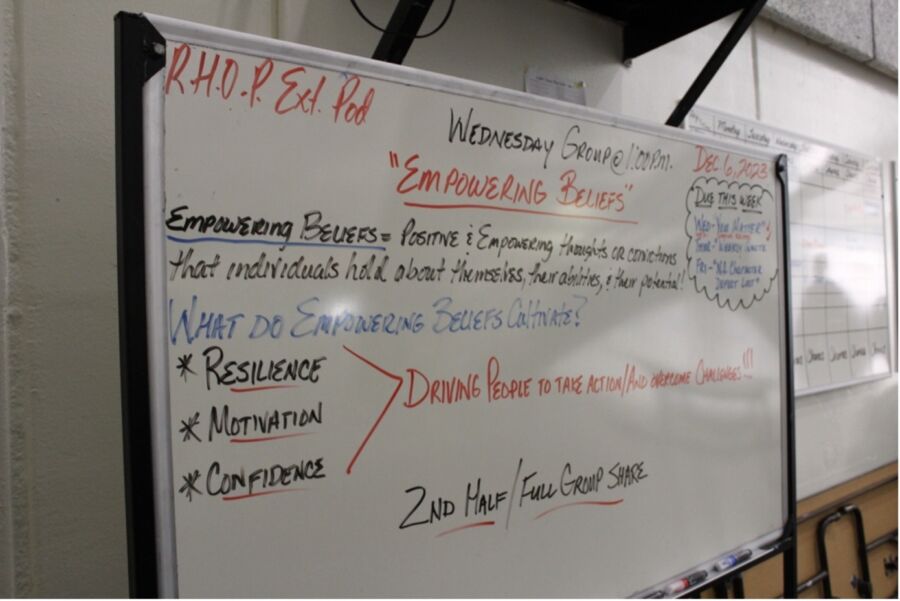 R.H.O.P. Ext. Pod
WEDNESDAY GROUP @ 1:00PM.
DEC 6, 2023
"EMPOWERING BELIEFS"
DUE THIS WEEK
WED-"YOU MATTER"
THUR-"WEEKLY
FRI-"N.A. CHARACTER
DEFECT LIST"
EMPOWERING BELIEFS = POSITIVE & EMPOWERING thoughts or convictions
that individuals hold about themselves, their abilities, & their potential!
WHAT DO EMPOWERING BELIEFS CULTIVATE?
* RESILIENCE
* MOTIVATION
* CONFIDENCE
DRIVING PEOPLE TO TAKE ACTION/AND OVERCOME CHALLENGES!!!
2ND HALF/FULL GROUP SHARE
Monday Tuesday Wednesday